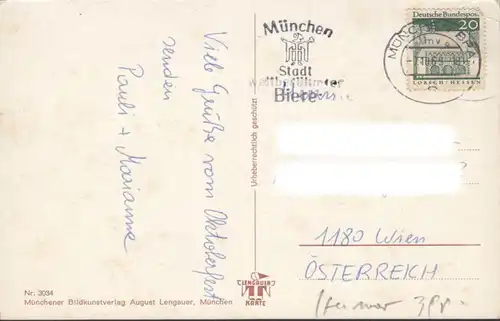 Viele Grüße vom Oktoberfest
senden
Pauli + Marianne
Nr. 3034
Münchener Bildkunstverlag August Lengauer, München
Urheberrechtlich geschützt
LENGAUER'S
KARTE
München
Stadt
weltberühmter
Biere
Deutsche Bundespost
20
LORSCH / HESSEN
MÜNCHEN
1180 Wien
ÖSTERREICH